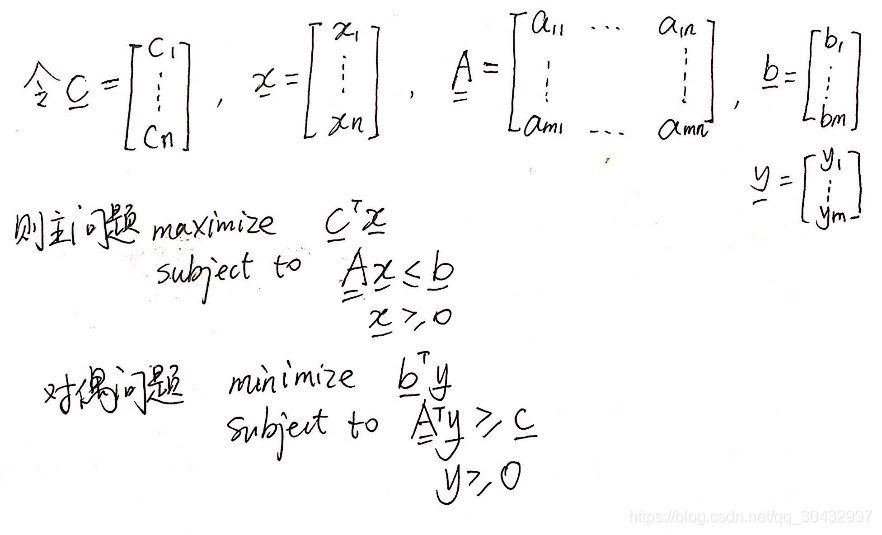 令 c = [c₁ ⋮ cn] , x = [x₁ ⋮ xn] , A = [a₁₁ ... a₁n ⋮ ⋮ am₁ ... amn] , b = [b₁ ⋮ bm]
y = [y₁ ⋮ ym]
则主问题 maximize cᵀx
subject to Ax ≤ b
x ≥ 0
对偶问题 minimize bᵀy
subject to Aᵀy ≥ c
y ≥ 0
https://blog.csdn.net/qq_30432997